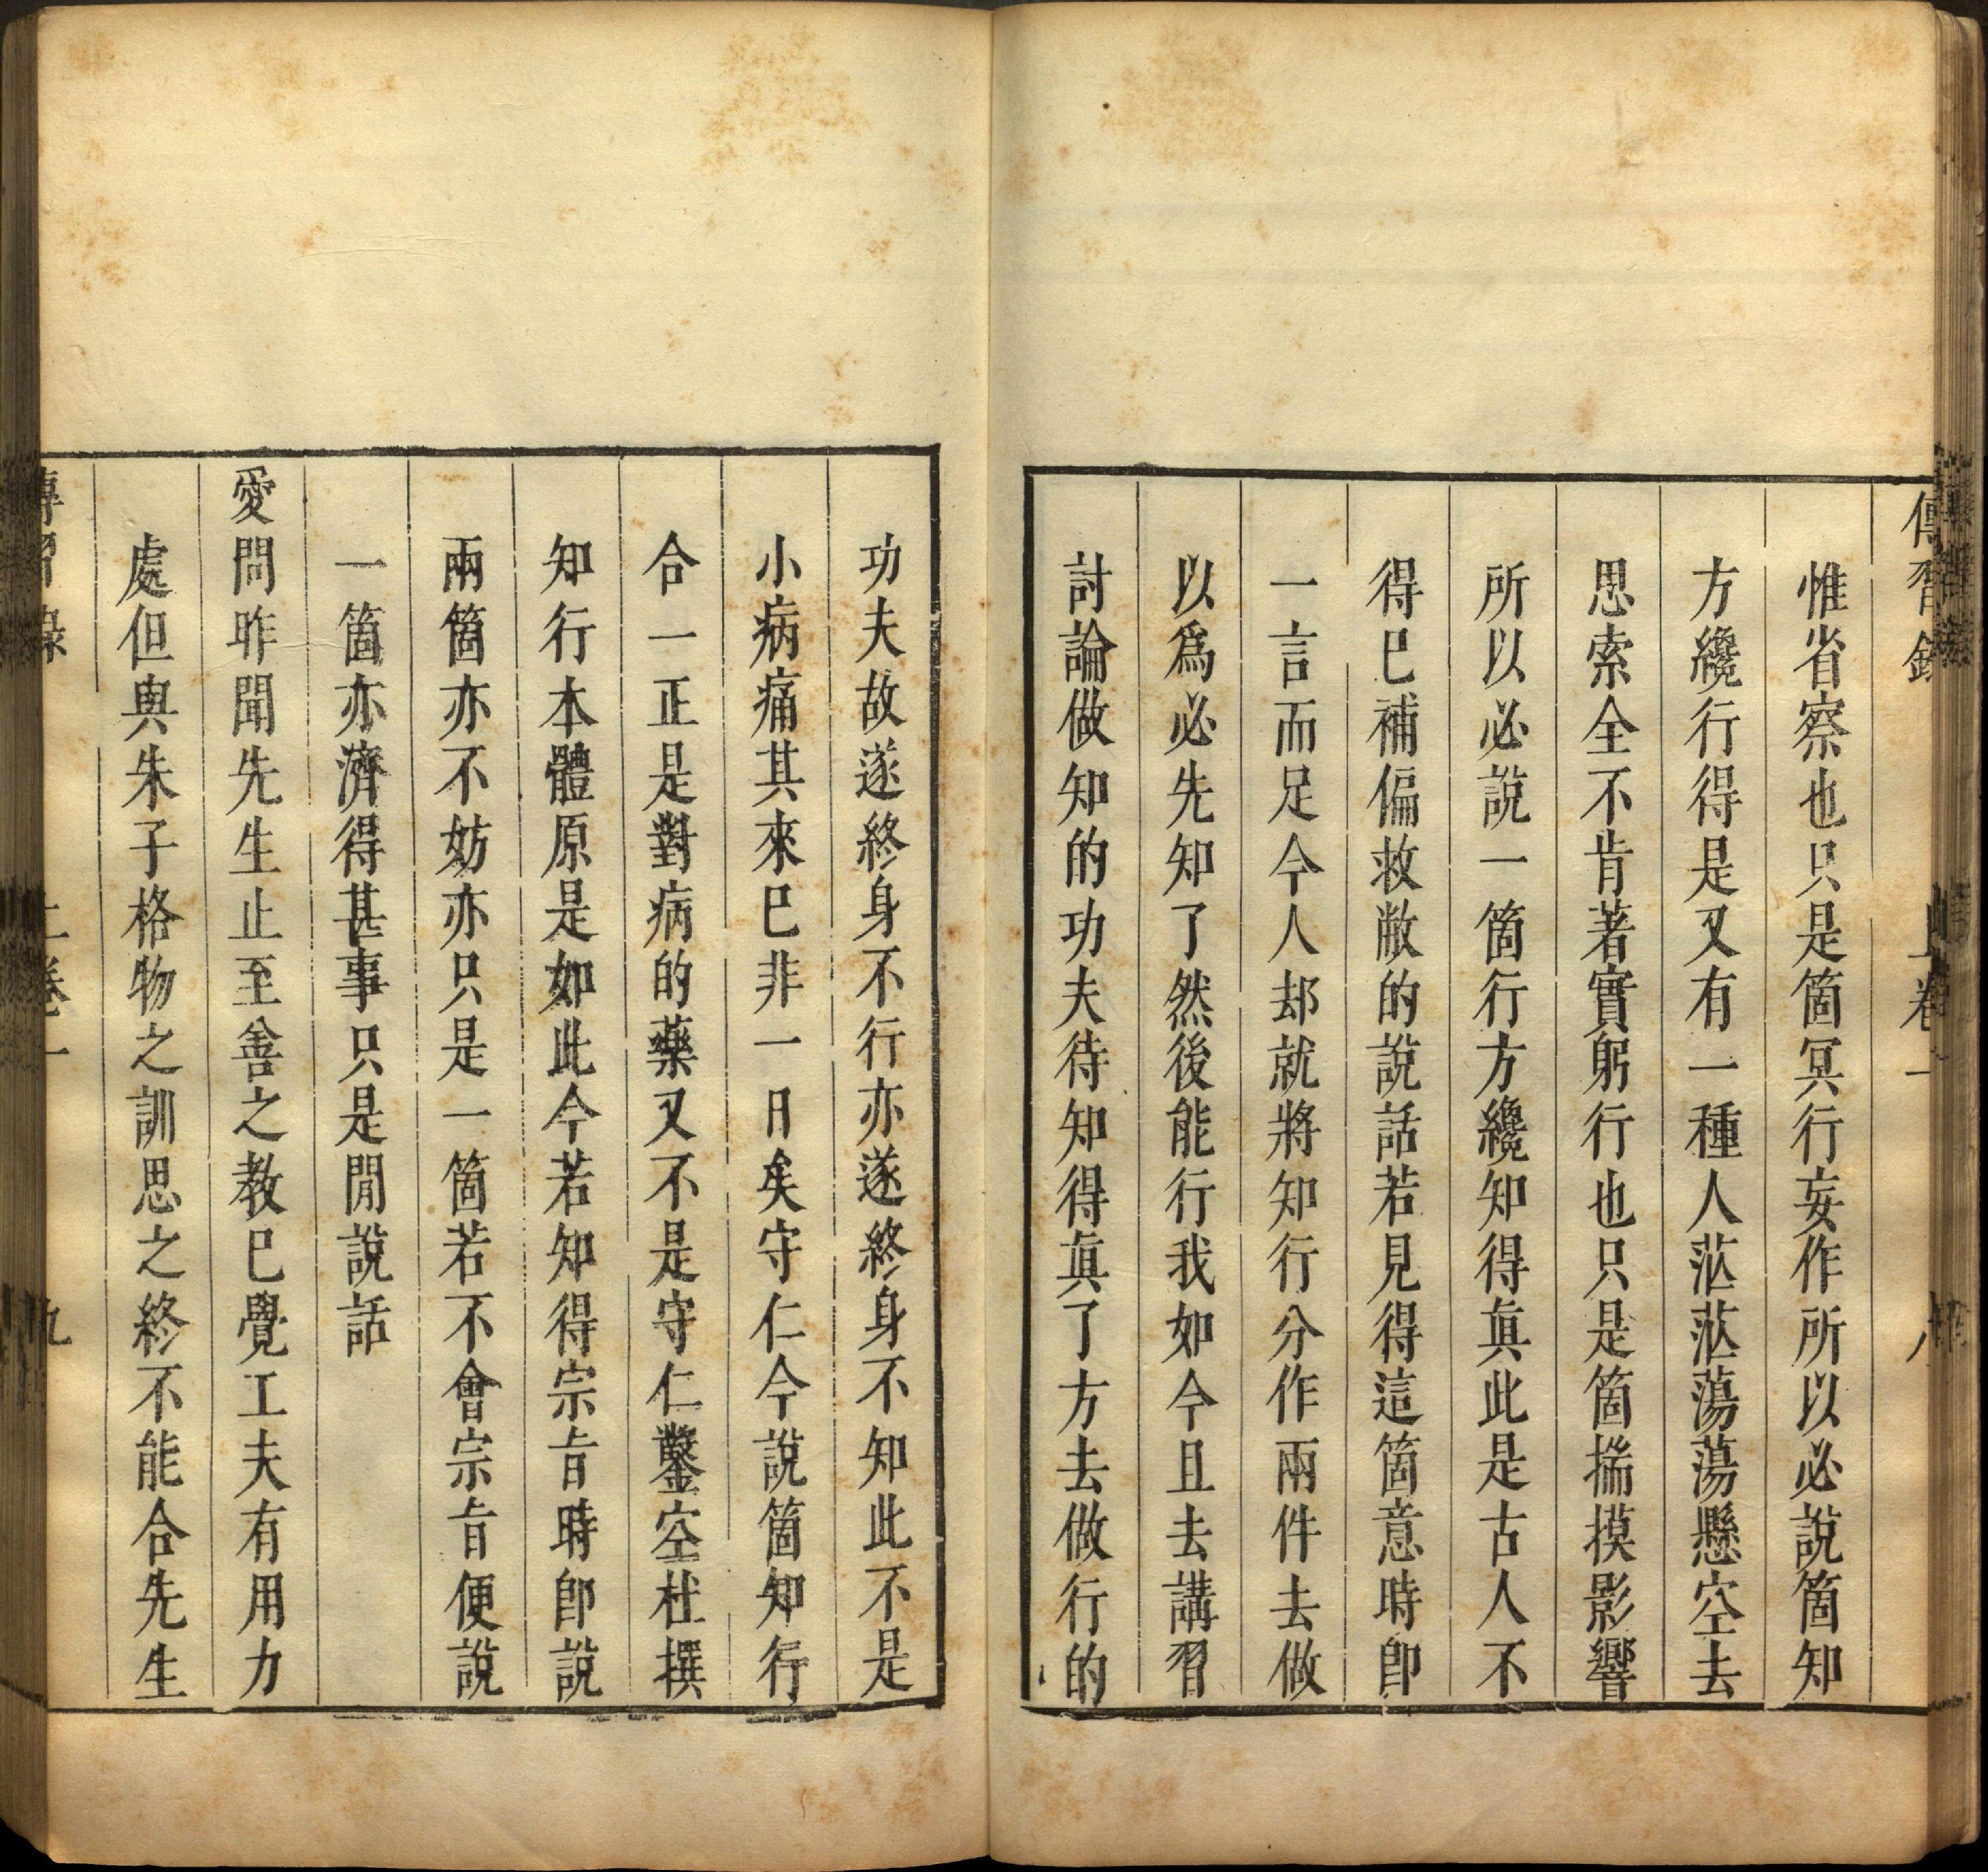 傳習錄 上卷一 八
惟省察也只是箇冥行妄作所以必說箇知
方纔行得是又有一種人茫茫蕩蕩懸空去
思索全不肯著實躬行也只是箇揣摸影響
所以必說一箇行方纔知得眞此是古人不
得已補偏救敝的說話若見得這箇意時卽
一言而足今人却就將知行分作兩件去做
以爲必先知了然後能行我如今且去講習
討論做知的功夫待知得眞了方去做行的
功夫故遂終身不行亦遂終身不知此不是
小病痛其來已非一日矣守仁今說箇知行
合一正是對病的藥又不是守仁鑿空杜撰
知行本體原是如此今若知得宗旨時卽說
兩箇亦不妨亦只是一箇若不會宗旨便說
一箇亦濟得甚事只是閒說話
愛問昨聞先生止至善之教已覺工夫有用力
處但與朱子格物之訓思之終不能合先生
傳習錄 上卷一 九